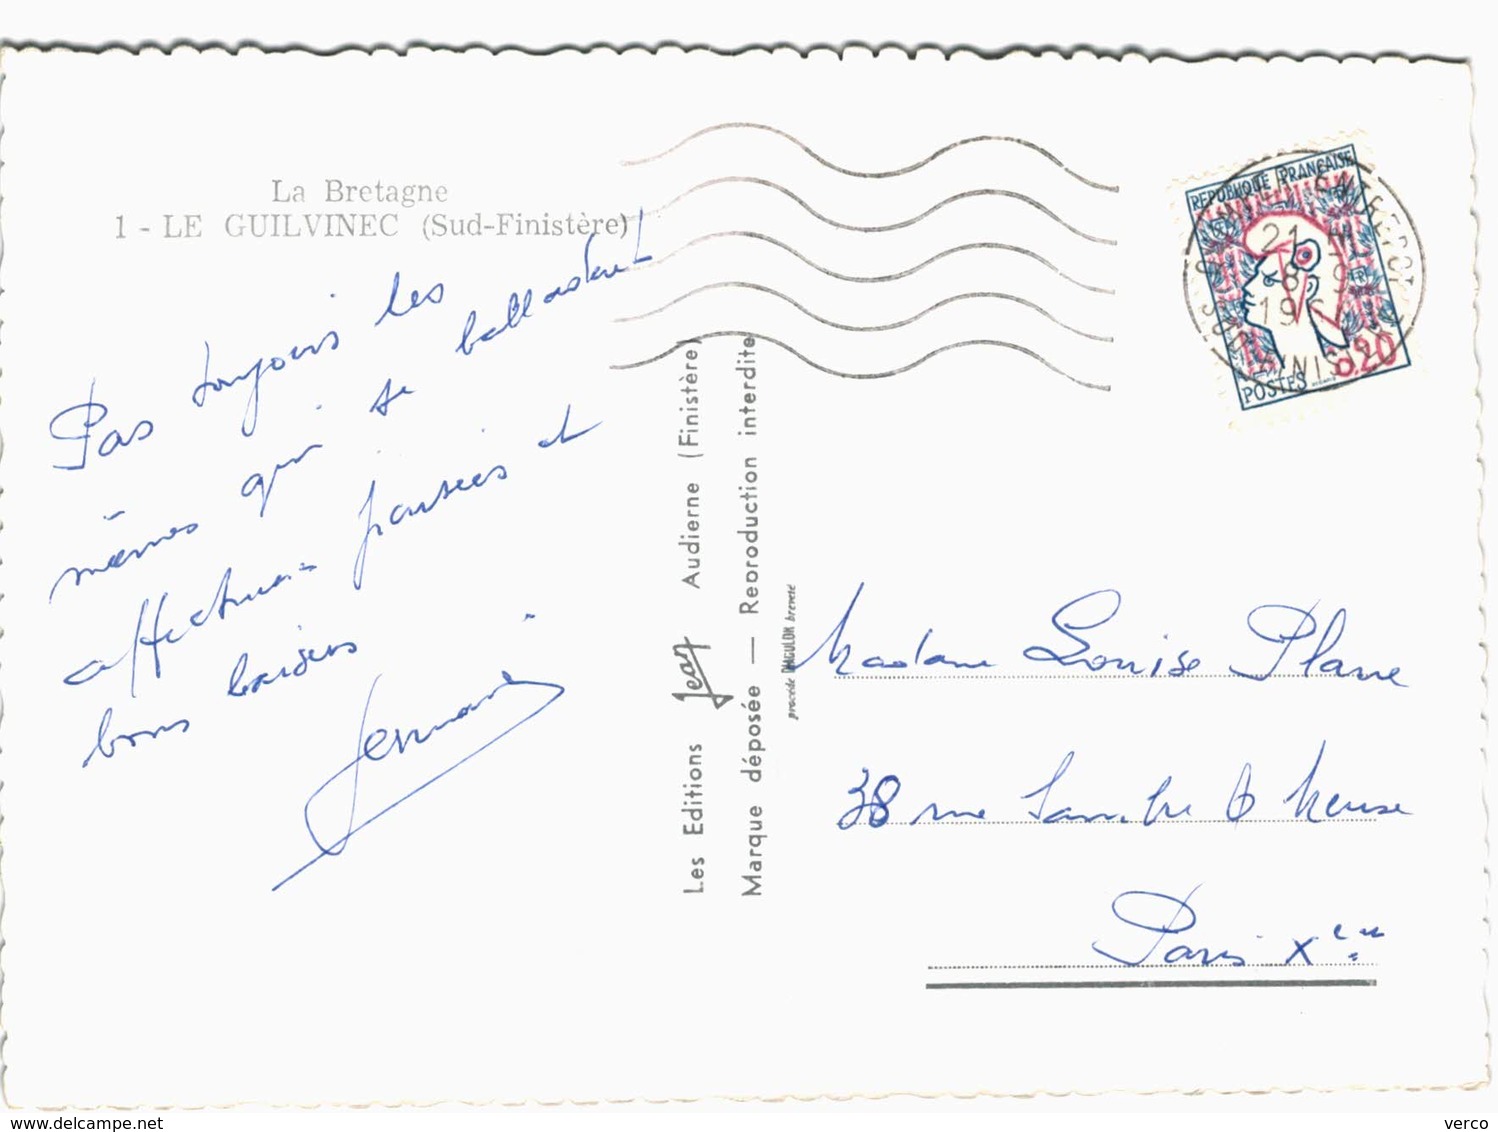 La Bretagne
1 - LE GUILVINEC (Sud-Finistère)
Pas toujours les
mêmes qui se balladent
affectueuses pensées et
bons baisers
Germaine
Les Editions Jean Audierne (Finistère)
Marque déposée — Reproduction interdite
procédé DRAGULOR breveté
REPUBLIQUE FRANÇAISE
21 H
8-9
196
POSTES
0,20
FINISTERE
Madame Louise Plane
38 rue Sambre & Meuse
Paris Xème
www.delcampe.net
verco